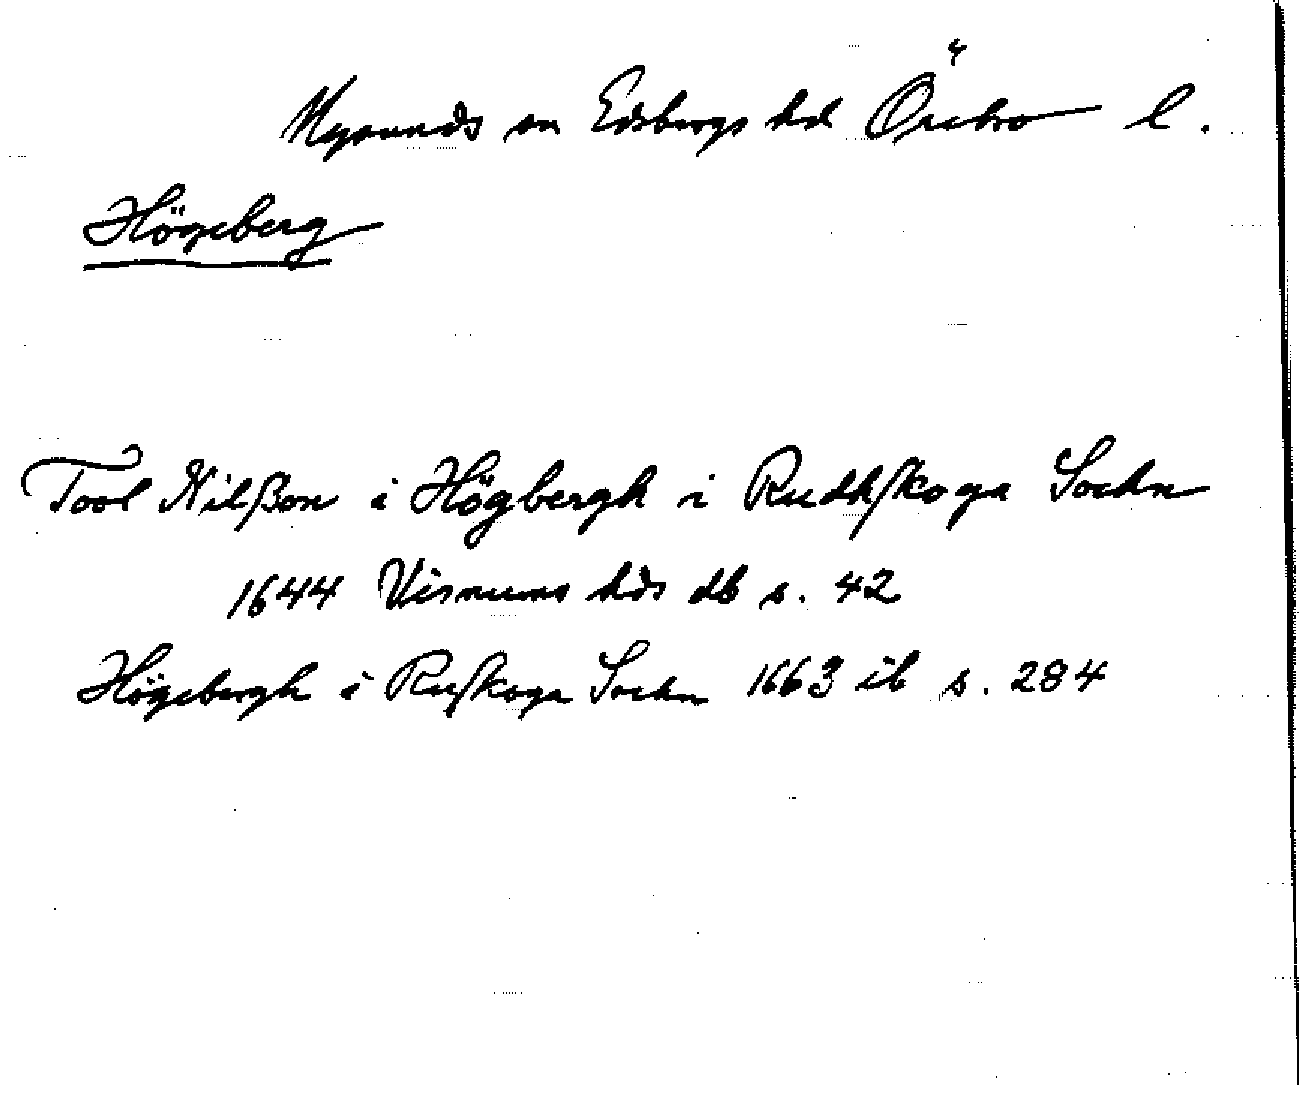 Nysunds sn Edsbergs hd Örebro l.
Högeberg
Tool Nilßon i Högbergh i Rudhskoga Sochn
1644 Visnums hds db s. 42
Högebergh i Ruskoga Sochn 1663 ib s. 284